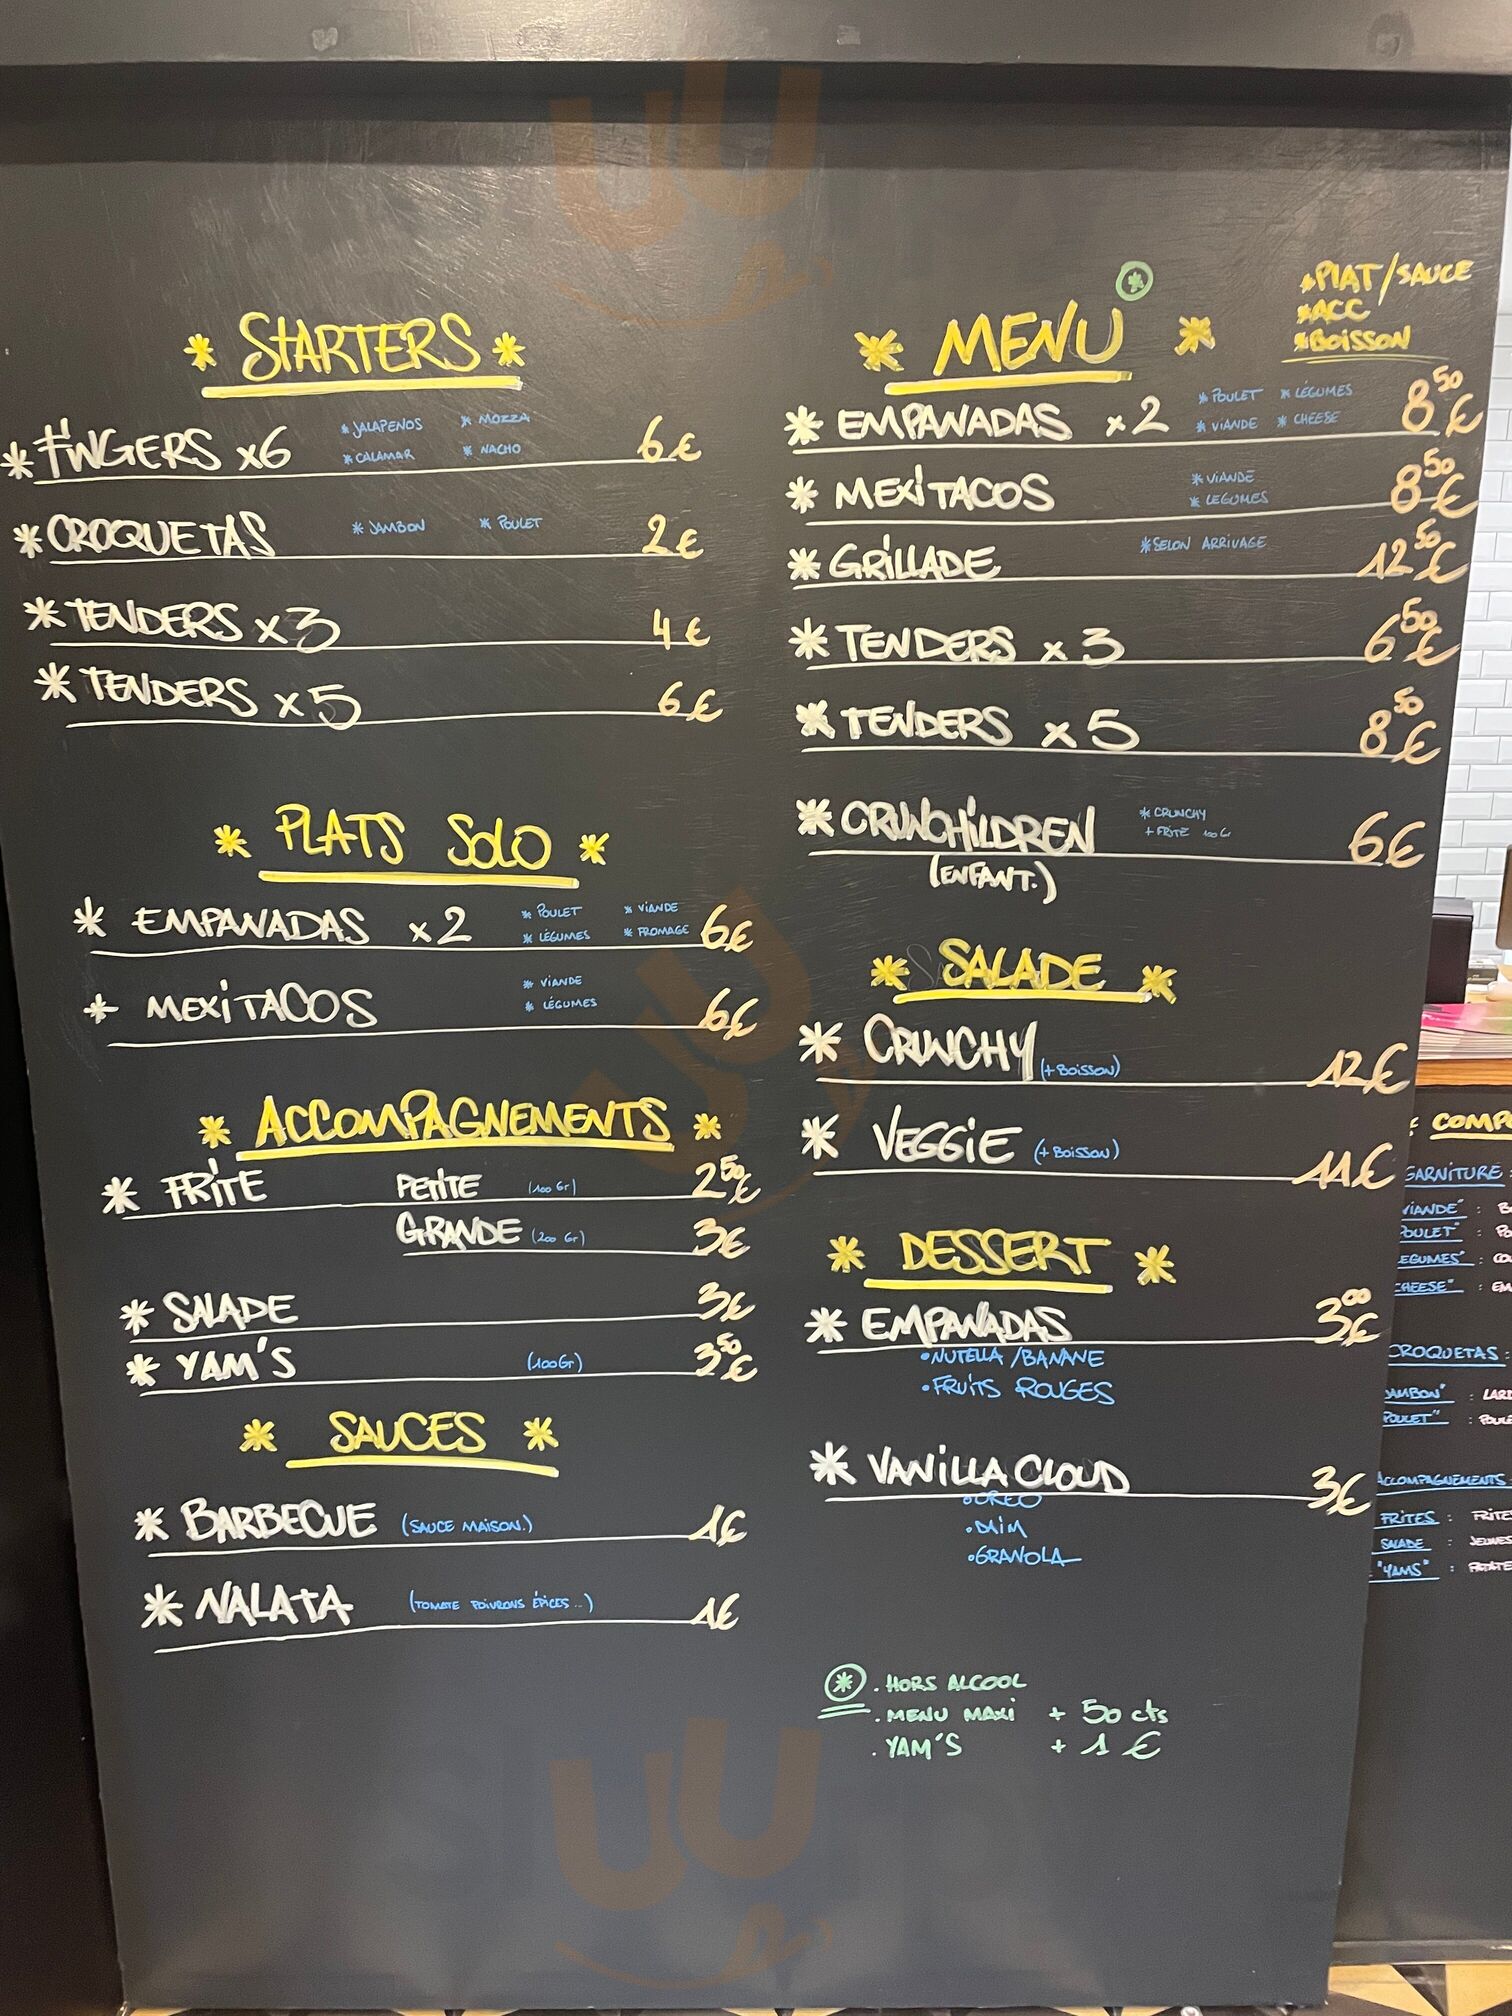 * STARTERS *
* FINGERS x6 * JALAPENOS * MOZZA 6€
* CALAMAR * NACHO
* CROQUETAS * JAMBON * POULET 2€
* TENDERS x3 4€
* TENDERS x5 6€
* PLATS SOLO *
* EMPANADAS x2 * POULET * VIANDE 6€
* LÉGUMES * FROMAGE
* MEXITACOS * VIANDE 6€
* LÉGUMES
* ACCOMPAGNEMENTS *
* FRITE PETITE (100 Gr) 2€50
GRANDE (200 Gr) 3€
* SALADE 3€
* YAM'S (100Gr) 3€50
* SAUCES *
* BARBECUE (SAUCE MAISON.) 1€
* NALATA (TOMATE POIVRONS ÉPICES..) 1€
* MENU *
*
* PLAT/SAUCE
* ACC
* BOISSON
* EMPANADAS x2 * POULET * LÉGUMES 8€50
* VIANDE * CHEESE
* MEXITACOS * VIANDE 8€50
* LEGUMES
* GRILLADE * SELON ARRIVAGE 12€50
* TENDERS x3 6€50
* TENDERS x5 8€50
* CRUNCHILDREN * CRUNCHY 6€
+ FRITE 100 Gr
(ENFANT.)
* SALADE *
* CRUNCHY (+ BOISSON) 12€
* VEGGIE (+ BOISSON) 11€
* DESSERT *
* EMPANADAS 3€00
• NUTELLA /BANANE
• FRUITS ROUGES
* VANILLA CLOUD 3€
• OREO
• DAIM
• GRANOLA
* . HORS ALCOOL
. MENU MAXI + 50 cts
. YAM'S + 1 €
: COMPO
GARNITURE
VIANDE" : B
POULET" : PO
LEGUMES" : CO
CHEESE" : EM
CROQUETAS :
JAMBON" : LARD
POULET" : POULE
ACCOMPAGNEMENTS
FRITES : FRITES
SALADE : JEUNES
"YAMS" : PATATE